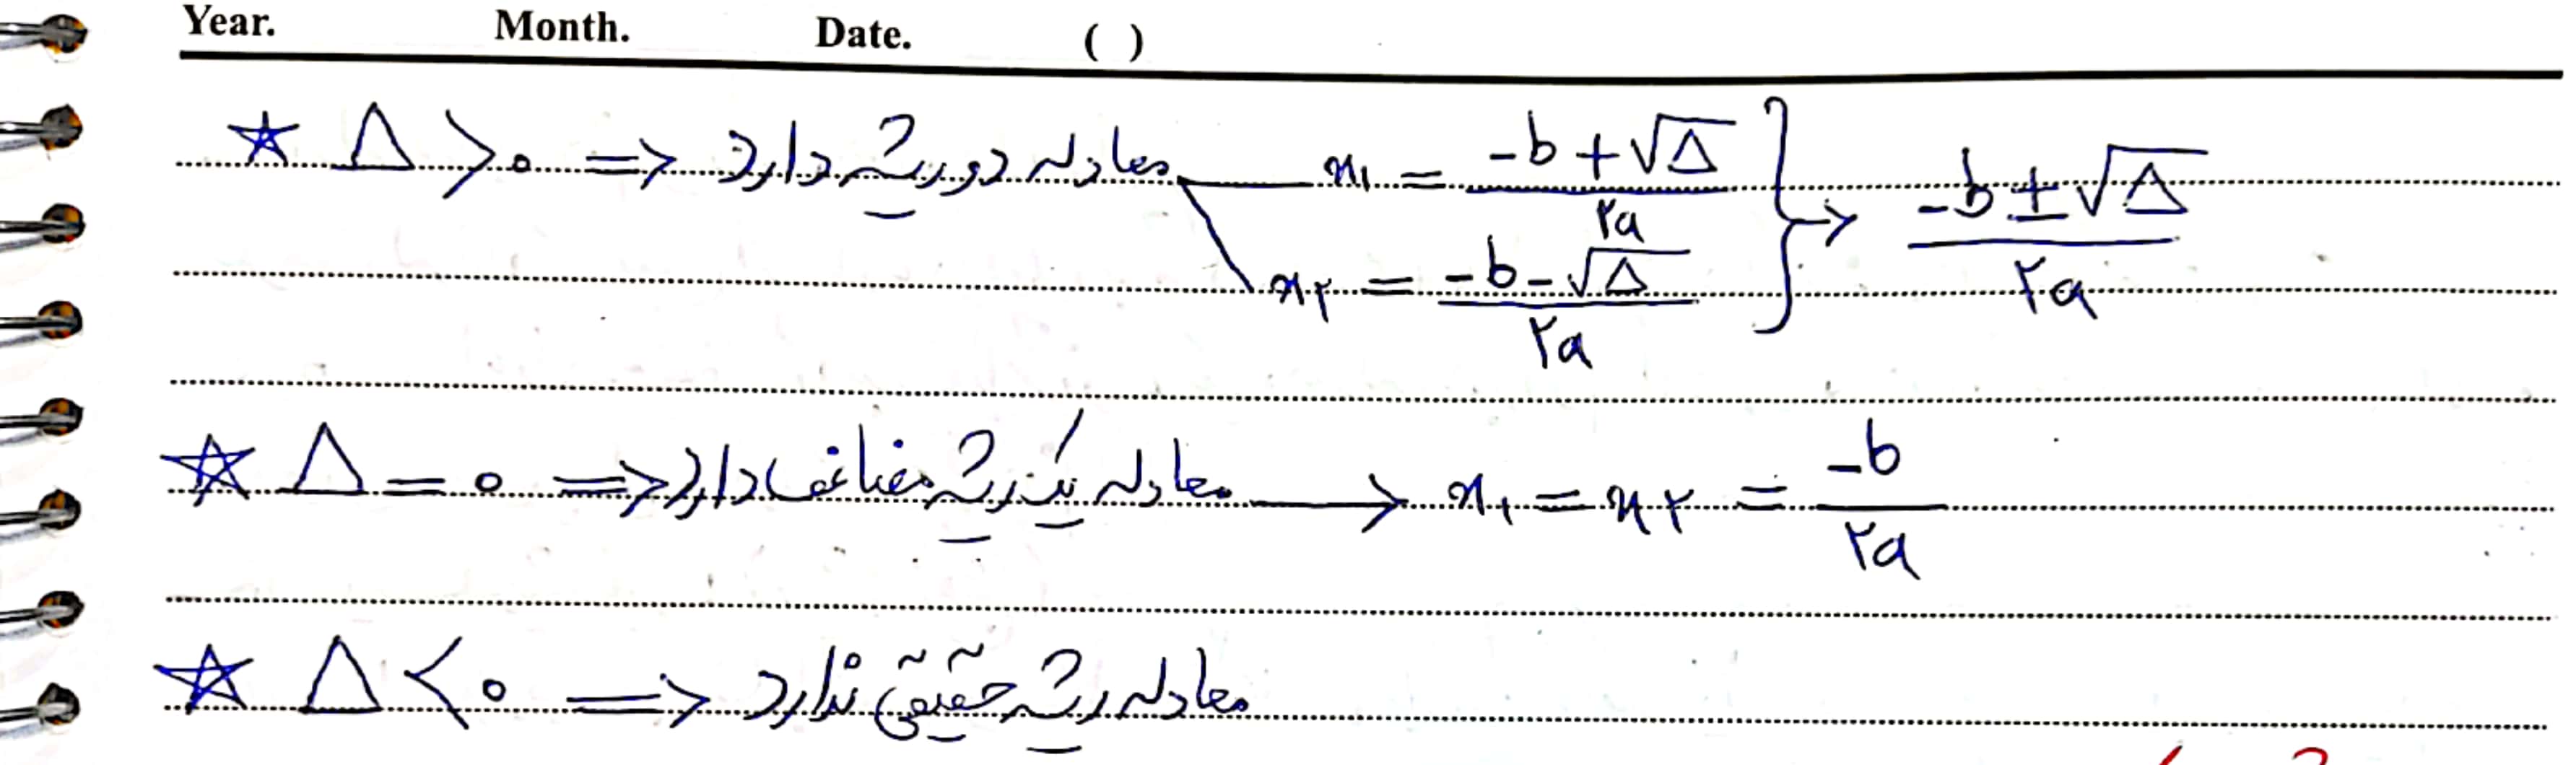 Year. Month. Date. ( )
☆ Δ > ۰ ⇒ معادله دو ریشه دارد x۱ = (-b + √Δ) / ۲a } → (-b ± √Δ) / ۲a
x۲ = (-b - √Δ) / ۲a
☆ Δ = ۰ ⇒ معادله یک ریشه مضاعف دارد → x۱ = x۲ = -b / ۲a
☆ Δ < ۰ ⇒ معادله ریشه حقیقی ندارد